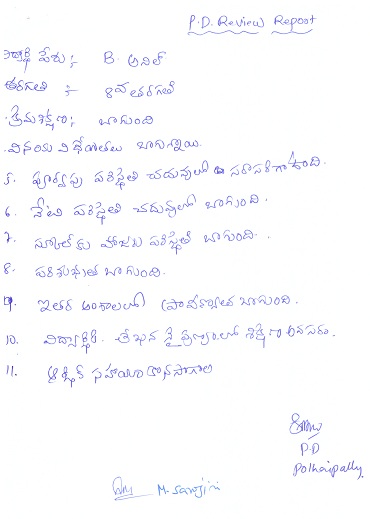 P.D. Review Repoot
విద్యార్థి పేరు :- B అనిల్
తరగతి :- 8వ తరగతి
క్రమశిక్షణ : బాగుంది
వినయ విధేయతలు బాగున్నాయి.
5. పూర్వపు పరిస్థితి చదువులో సరాసరిగా ఉంది.
6. నేటి పరిస్థితి చదువులో బాగుంది.
7. స్కూల్ కు హాజరు పరిస్థితి బాగుంది.
8. పరిశుభ్రత బాగుంది.
9. ఇతర అంశాలలో ప్రావీణ్యత బాగుంది.
10. విద్యార్థికి లేఖన నైపుణ్యంలో శిక్షణ అవసరం.
11. ఆర్థిక సహాయం కొనసాగాలి
P.D
Polkaipally.
M. Sarojini